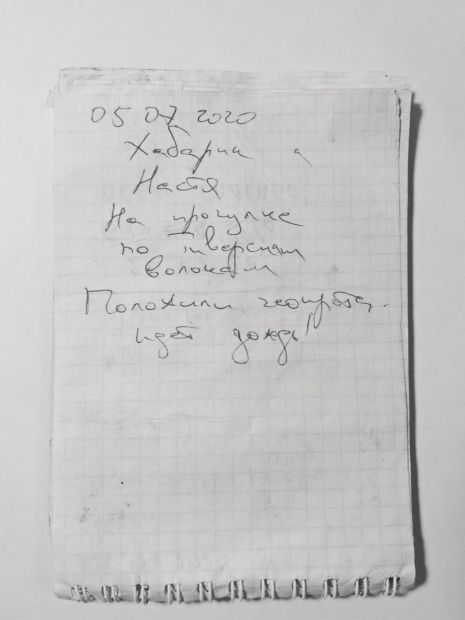 05 07 2020
Хабарик и
Настя
На прогулке
по тверским
волокам
Положили
идёт дождь!